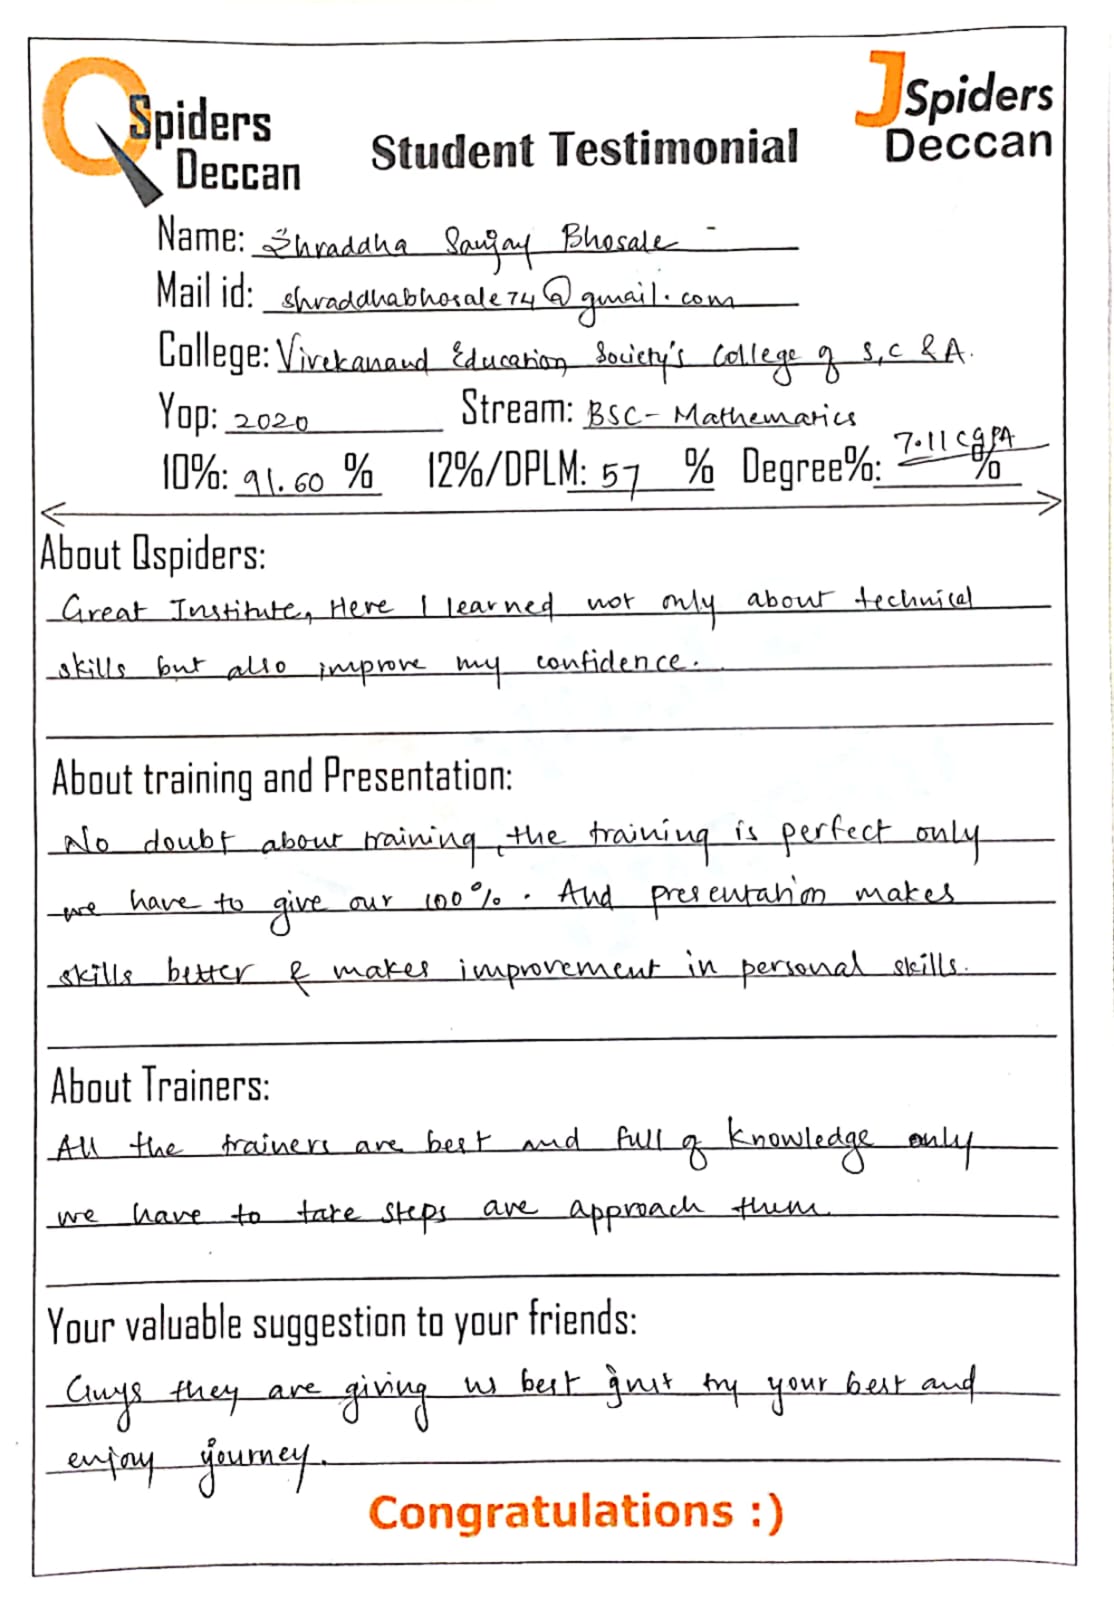 QSpiders
Deccan
Student Testimonial
JSpiders
Deccan
Name: Shraddha Sanjay Bhosale
Mail id: shraddhabhosale74@gmail.com
College: Vivekanand Education Society's College of S, C & A.
Yop: 2020 Stream: BSC - Mathematics
10%: 91.60 % 12%/DPLM: 57 % Degree%: 7.11 CGPA %
About Qspiders:
Great Institute, Here I learned not only about technical
skills but also improve my confidence.
About training and Presentation:
No doubt about training, the training is perfect only
we have to give our 100%. And presentation makes
skills better & makes improvement in personal skills.
About Trainers:
All the trainers are best and full of knowledge only
we have to take steps are approach them.
Your valuable suggestion to your friends:
Guys they are giving us best just try your best and
enjoy journey.
Congratulations :)